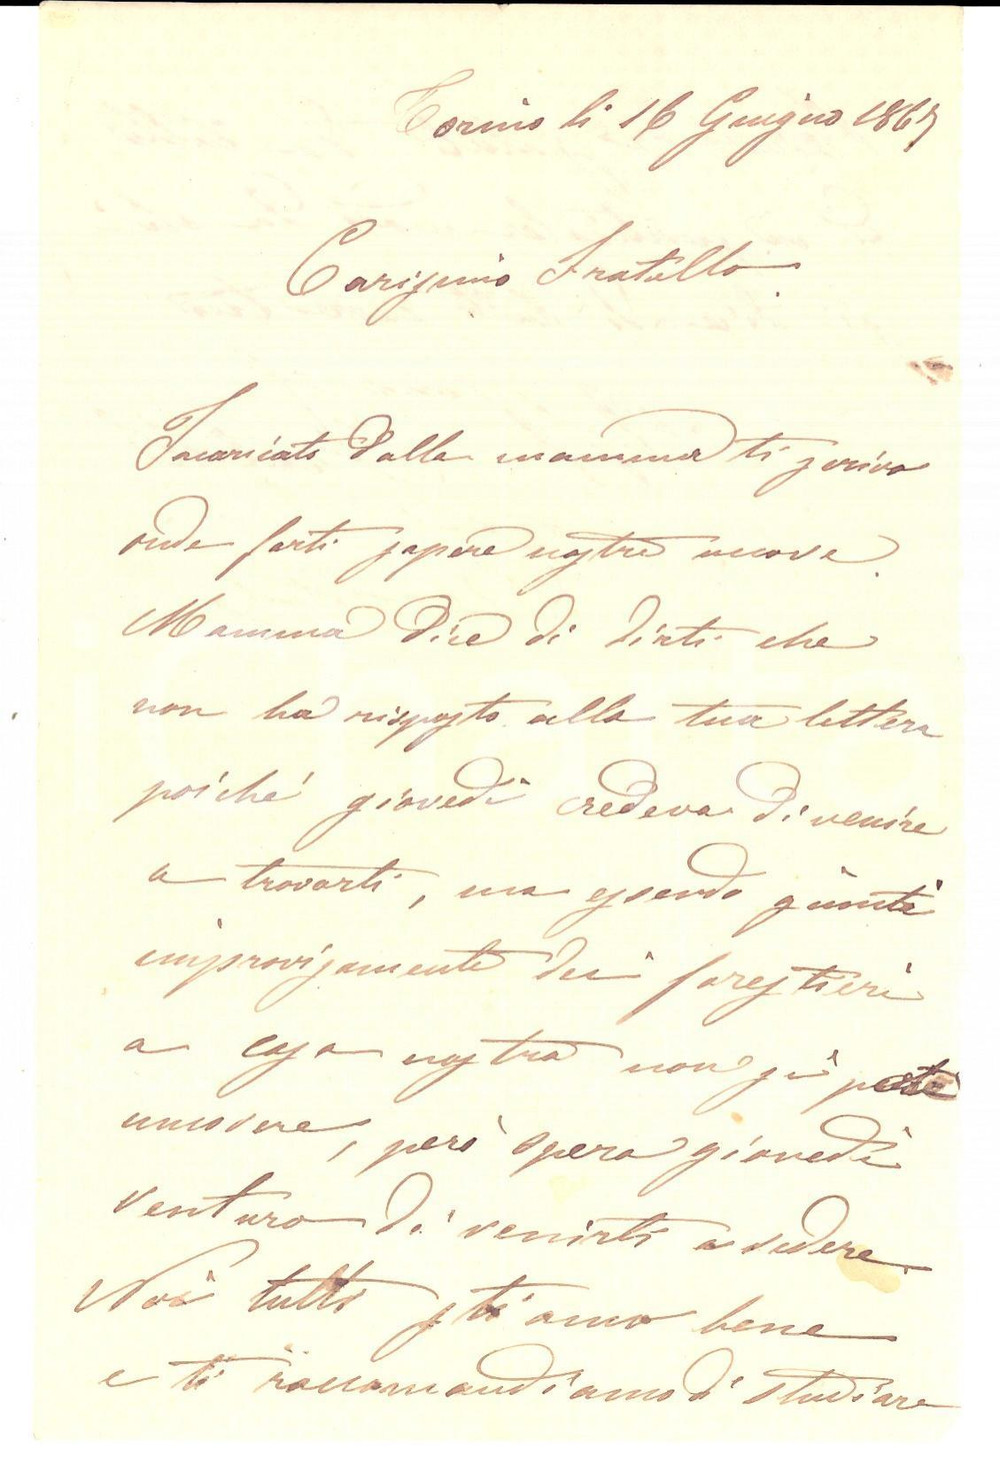 Torino li 16 Giugno 1867
Carissimo Fratello.
Incaricato dalla mamma ti scrivo
onde farti sapere nostre nuove.
Mamma dice di dirti che
non ha risposto alla tua lettera
poiché giovedì credeva di venire
a trovarti, ma essendo giunti
improvisamente dei forestieri
a casa nostra non si potè
muovere, però spera giovedì
venturo di venirti a vedere.
Noi tutti stiamo bene
e ti raccomandiamo di studiare